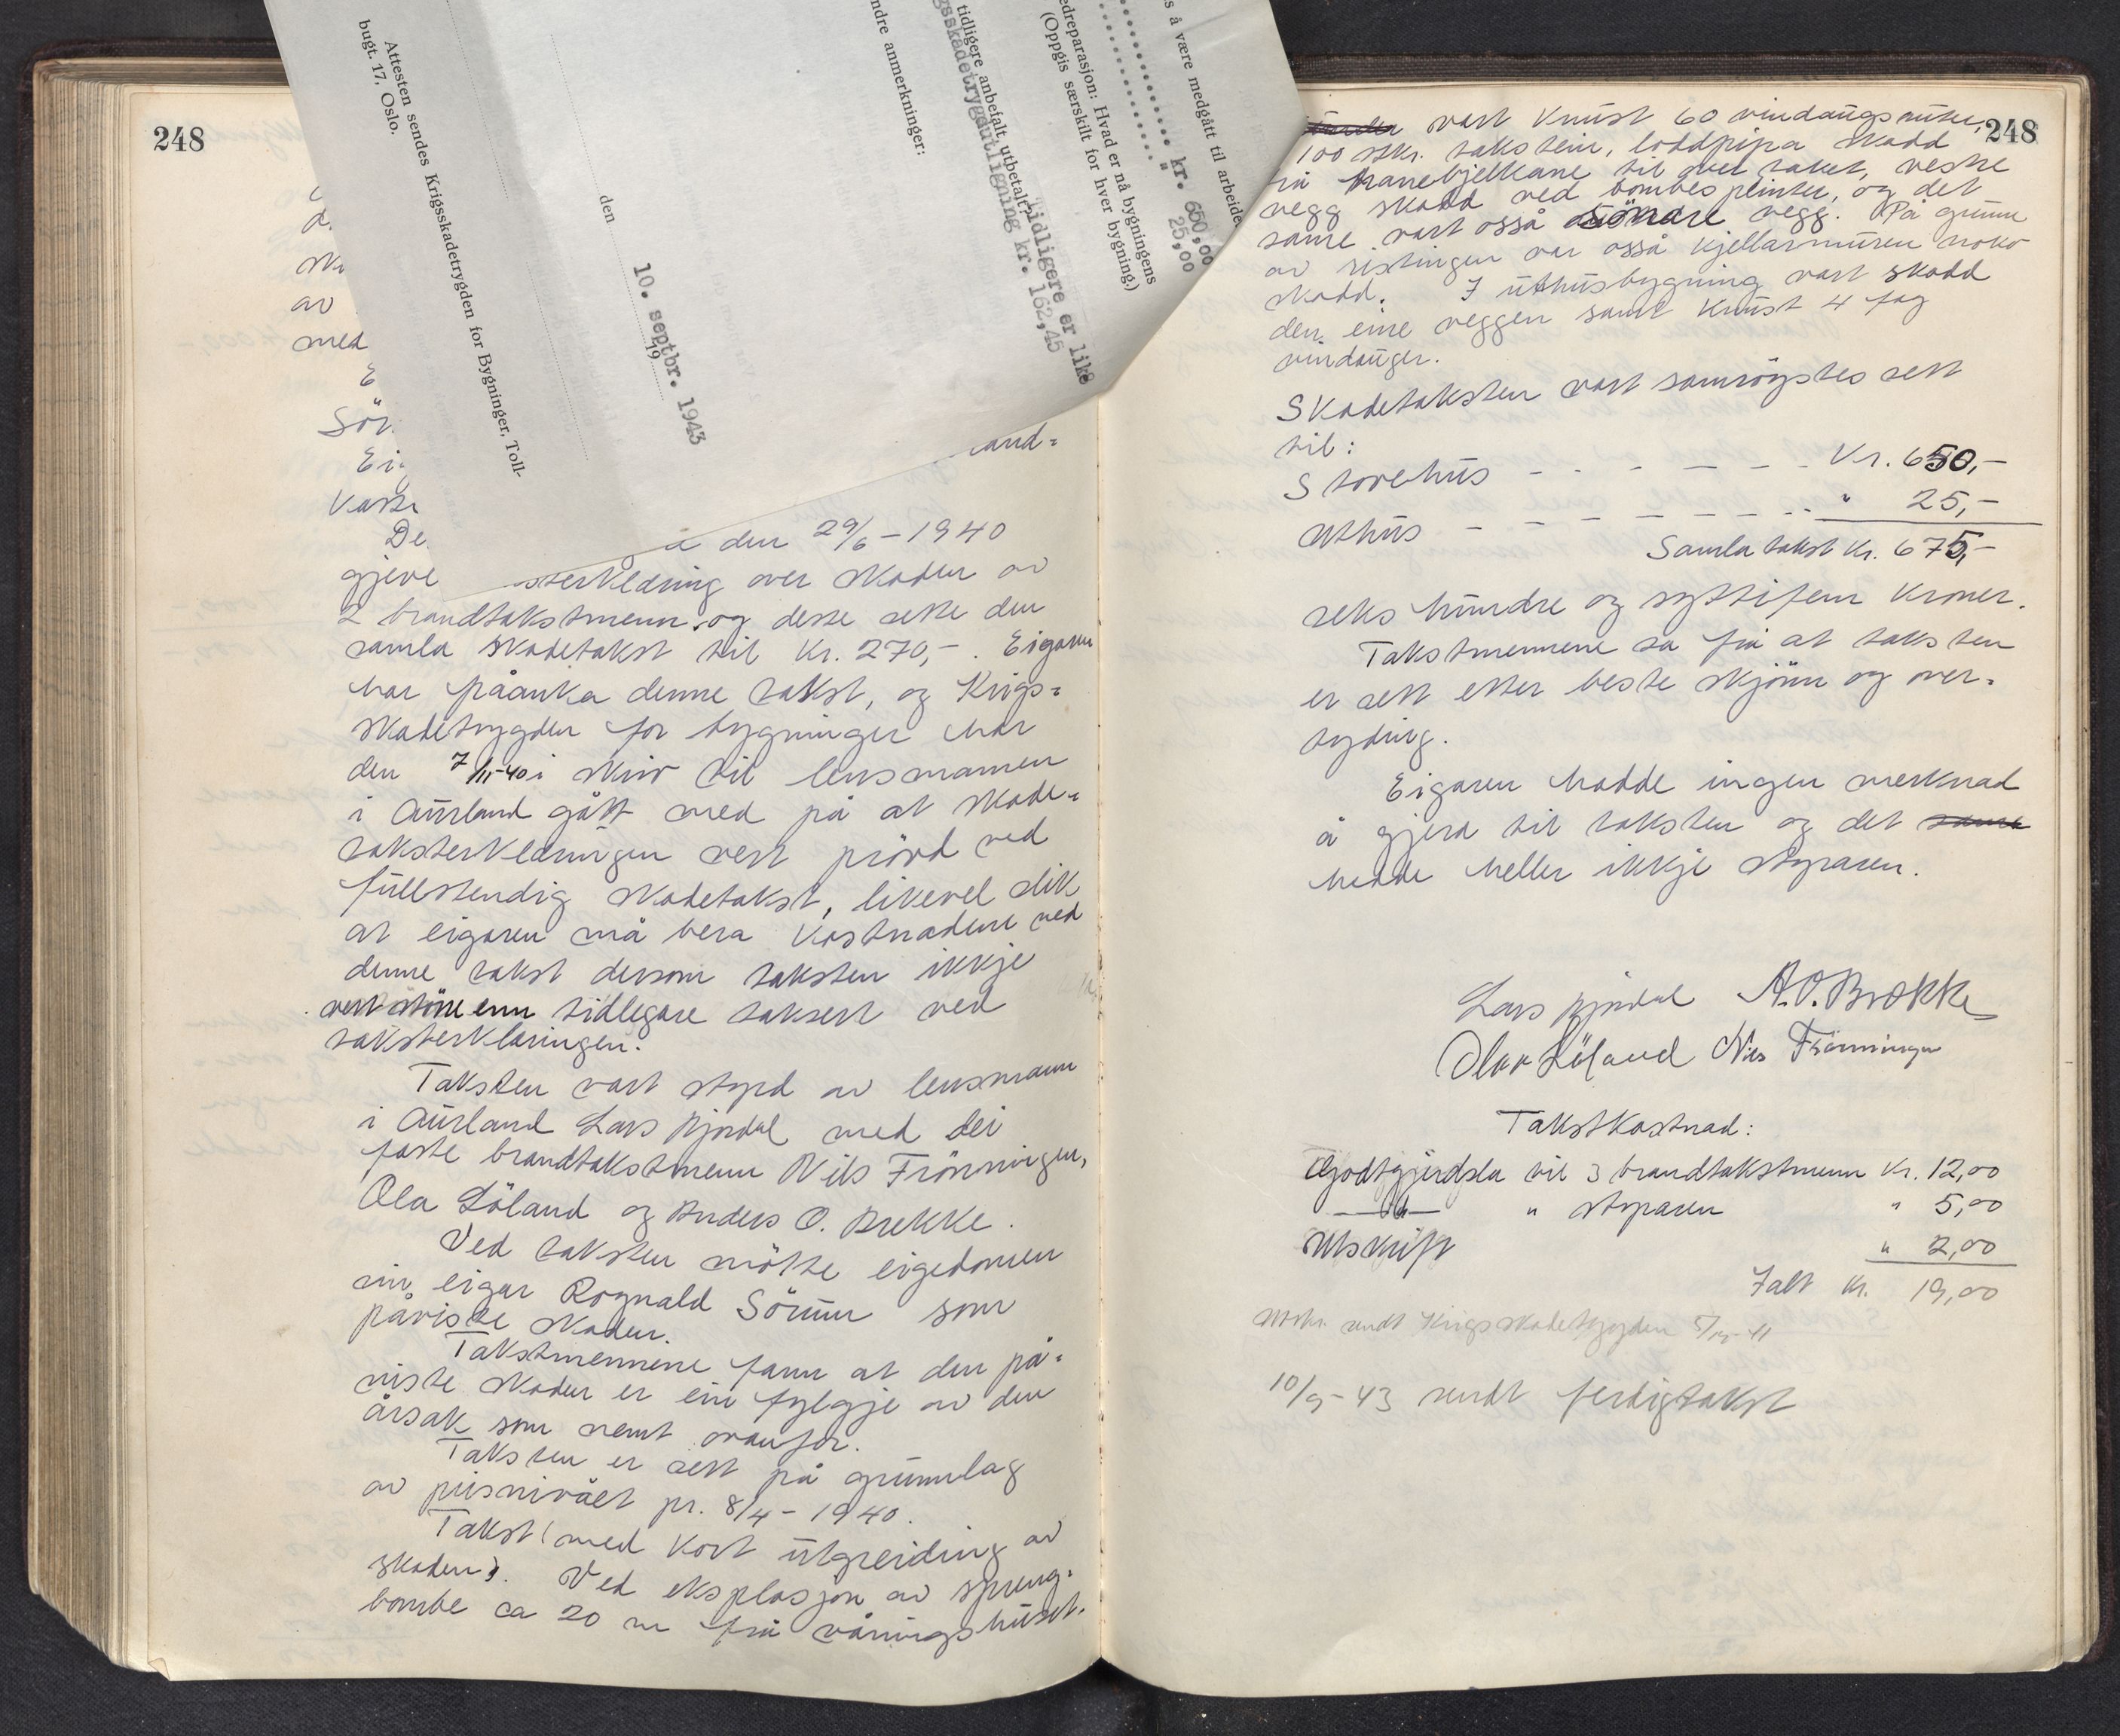 248
av
med
and-
den 29/6 - 1940
gjeve
over skaden av
2 brandtakstmenn og desse sette den
samla skadetakst til kr. 270,- . Eigaren
har påanka denne takst, og Krigs-
skadetrygden for bygninger har
den 7/11-40 i skriv til lensmannen
i Aurland gått med på at skade-
taksterklæringen vert prövd ved
fullstendig skadetakst, likevel slik
at eigaren må bera kostnadene ved
denne takst dersom taksten ikkje
vert större enn tidlegare taksert ved
taksterklæringen.
Taksten vart styrd av lensmann
i Aurland Lars Björdal med dei
faste brandtakstmenn Nils Frönningen,
Ola Löland og Anders O. Brekke.
Ved taksten mötte eigedomen
sin eigar Rognald Sörum som
påviste skaden.
Takstmennene fann at den på-
viste skaden er ein fylgje av den
årsak som nemt ovanfor.
Taksten er sett på grunnlag
av prisnivået pr. 8/4 - 1940.
Takst (med kort utgreiding av
skaden). Ved eksplosjon av spreng-
bombe ca 20 m frå våningshuset.
Attesten sendes Krigsskadetrygden for Bygninger, Toll-
bugt. 17, Oslo.
den 10. septbr. 1943
19
ndre anmerkninger:
gsskadetrygdutligning kr. 162,45
tidligere anbefalt utbetalt?
Tidligere er like
(Oppgis særskilt for hver bygning.)
edreparasjon: Hvad er nå bygningens
" 25,00
kr. 650,00
s å være medgått til arbeide
248
vart knust 60 vindaugsruter,
100 stkr. takstein, loddpipa skadd
frå hanebjelkane til over taket, vestre
vegg skadd ved bombesplinter, og det
same vart osså söndre vegg. På grunn
av ristingen var osså kjellarmuren noko
skadd. I uthusbygning vart skadd
den eine veggen samt knust 4 fag
vindauger.
Skadetaksten vart samröystes sett
til:
Storehus - - - - - - Kr. 650,-
Uthus - - - - - - - " 25,-
Samla takst kr. 675,-
seks hundre og syttifem kroner.
Takstmennene sa frå at taksten
er sett etter beste skjönn og over-
tyding.
Eigaren hadde ingen merknad
å gjera til taksten og det same
hadde heller ikkje styraren.
Lars Björdal A.O. Brekke
Olav Löland Nils Frönningen
Takstkostnad:
Godtgjerdsla til 3 brandtakstmenn kr. 12,00
" styraren " 5,00
Utskrift " 2,00
Ialt kr. 19,00
Utskr. sendt Krigsskadetrygden
10/9 - 43 sendt ferdigtakst